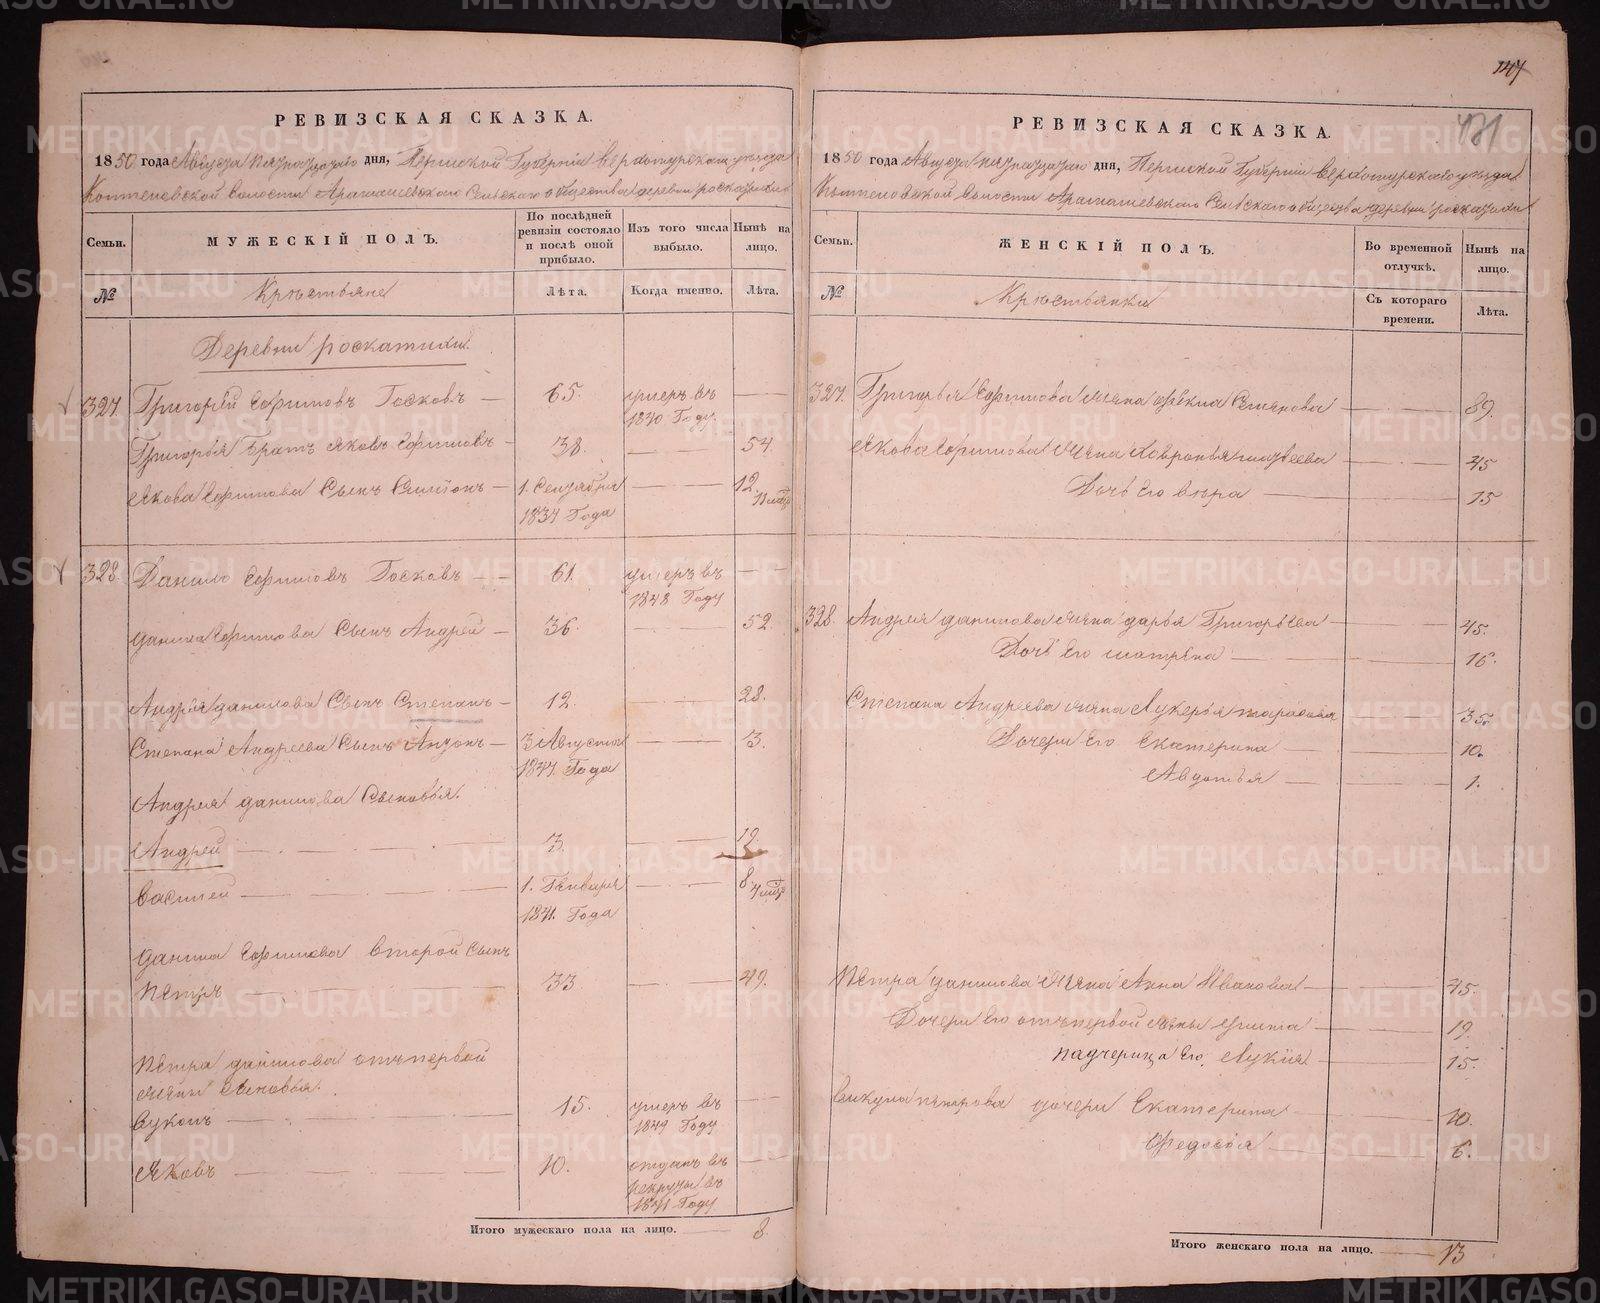 147
431
РЕВИЗСКАЯ СКАЗКА.
1850 года Августа пятнадцатого дня, Пермской Губернии Верхотурского уезда
Коптеловской волости Арамашевского Сельского общества деревни роскатихи
Семьи.
МУЖЕСКІЙ ПОЛЪ.
По послѣдней ревизіи состояло и послѣ оной прибыло.
Изъ того числа выбыло.
Нынѣ на лицо.
№
Крестьяне
Лѣта.
Когда именно.
Лѣта.
Деревни роскатихи.
327. Григорей Ефимовъ Госковъ — 65. умеръ въ 1840 Году —
Григорья братъ Яковъ Ефимовъ — 38. — 54.
Якова Ефимова Сынъ Симионъ — 1. Сентября 1837 Года — 12. 11 мцъ
328. Данило Ефимовъ Госковъ — 61. умеръ въ 1848 Году —
Данила Ефимова Сынъ Андрей — 36. — 52.
Андрея данилова Сынъ Степанъ — 12. — 28.
Степана Андреева Сынъ Антонъ — 3 Августа 1847 Года — 3.
Андрея данилова Сыновья.
Андрей — 3. — 19.
Василей — 1. Генваря 1841. Года — 8 7 мцъ
Данила Ефимова второй Сынъ
Петръ — 33 — 49.
Петра данилова отъ первой
жены Сыновья.
Вуколъ — 15. умеръ въ 1849 Году —
Яковъ — 10. отданъ въ рекруты въ 1841 Году —
Итого мужескаго пола на лицо. — 8.
РЕВИЗСКАЯ СКАЗКА.
1850 года Августа пятнадцатаго дня, Пермской Губернии Верхотурскаго уезда
Коптеловской волости Арамашевскаго Сельскаго общества деревни роскатихи
Семьи.
ЖЕНСКІЙ ПОЛЪ.
Во временной отлучкѣ.
Нынѣ на лицо.
№
Крестьянки
Съ котораго времени.
Лѣта.
327. Григорья Ефимова жена Фекла Семянова — 89.
Якова Ефимова Жена Хавронья матвеева — 45
Дочь его вера — 15
328. Андрея данилова жена дарья Григорьева — 45.
Дочь его матрена — 16.
Степана Андреева жена Лукерья тарасова — 35.
Дочери его Екатерина — 10.
Авдотья — 1.
Петра данилова Жена Анна Иванова — 45.
Дочери его отъ первой жены — 19.
падчерица его Лукия — 15.
Викула петрова дочери Екатерина — 10.
Федосья — 6.
Итого женскаго пола на лицо. — 13